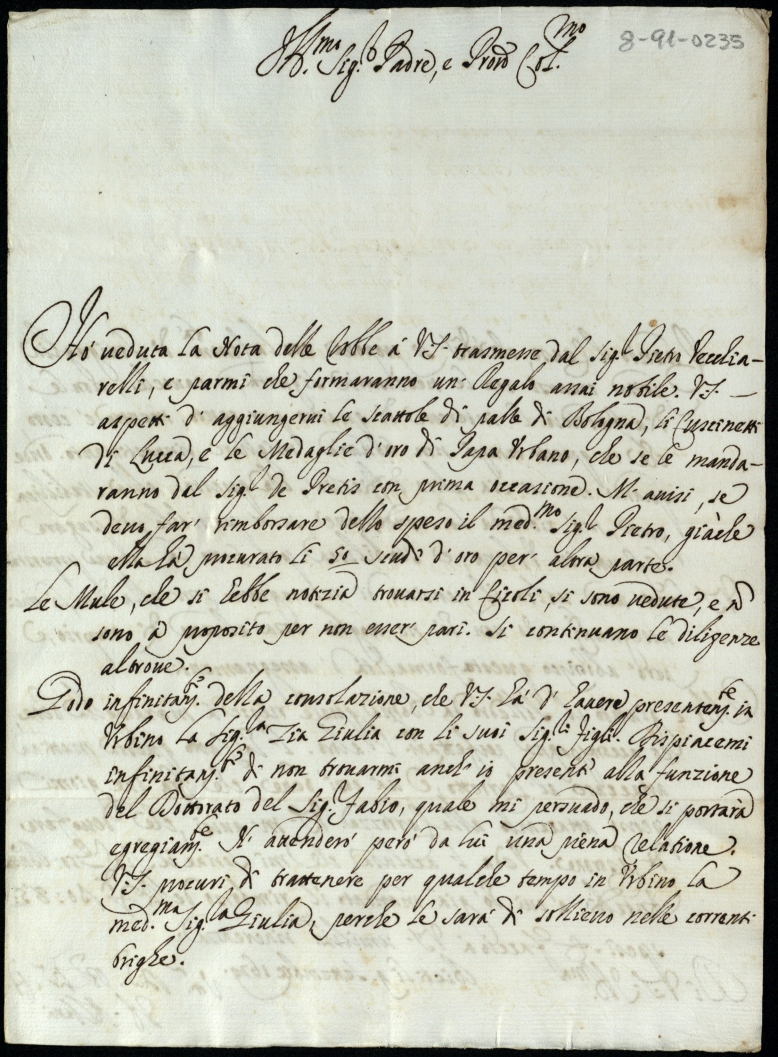 8-91-0235
Ill.mo Sig.r Padre, e Pron Col.mo
Hò veduta la Nota delle robbe à VS. trasmesse dal Sig.r Pietro Vecchia-
relli, e parmi che formaranno un' Regalo assai nobile. VS.
aspetti d' aggiungerui le scattole di palle di Bologna, li Cuscinetti
di Lucca, e le Medaglie d'oro di Papa Vrbano, che se le manda-
ranno dal Sig.r de Pretis con prima occasione. M' auisi, se
deuo far' rimborsare dello speso il med.mo Sig.r Pietro, giàche
ella hà procurato li 50 scudi d'oro per altra parte.
Le Mule, che si hebbe notizia trouarsi in Cicoli, si sono vedute, e ñ
sono à proposito per non esser' pari. Si continuano le diligenze
altroue.
Godo infinitam.te della consolazione, che VS. hà d' hauere presentem.te in
Vrbino la Sig.a Zia Giulia con li suoi Sig.li figli. Dispiacemi
infinitam.te di non trouarmi anch' io presente alla funzione
del Dottorato del Sig.r Fabio, quale mi persuado, che si portarà
egregiam.te N' attenderò però da lui una piena relatione.
VS. procuri di trattenere per qualche tempo in Vrbino la
med.ma Sig.ra Giulia, perche le sarà di sollieuo nelle correnti
brighe.